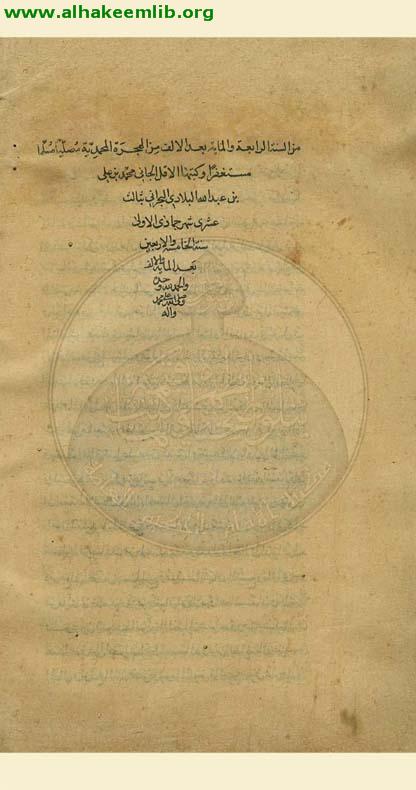 www.alhakeemlib.org
من السنة الرابعة والماية بعد الالف من الهجرة المحمدية مصليا مسلما
مستغفرا وكتبها الاقل الجاني محمد بن علي
بن عبد الله البلادي البحراني ثالث
عشري شهر جمادى الاولى
سنة الخامسة والاربعين
بعد الماية والالف
والحمد لله وحده
وصلى الله على محمد
واله